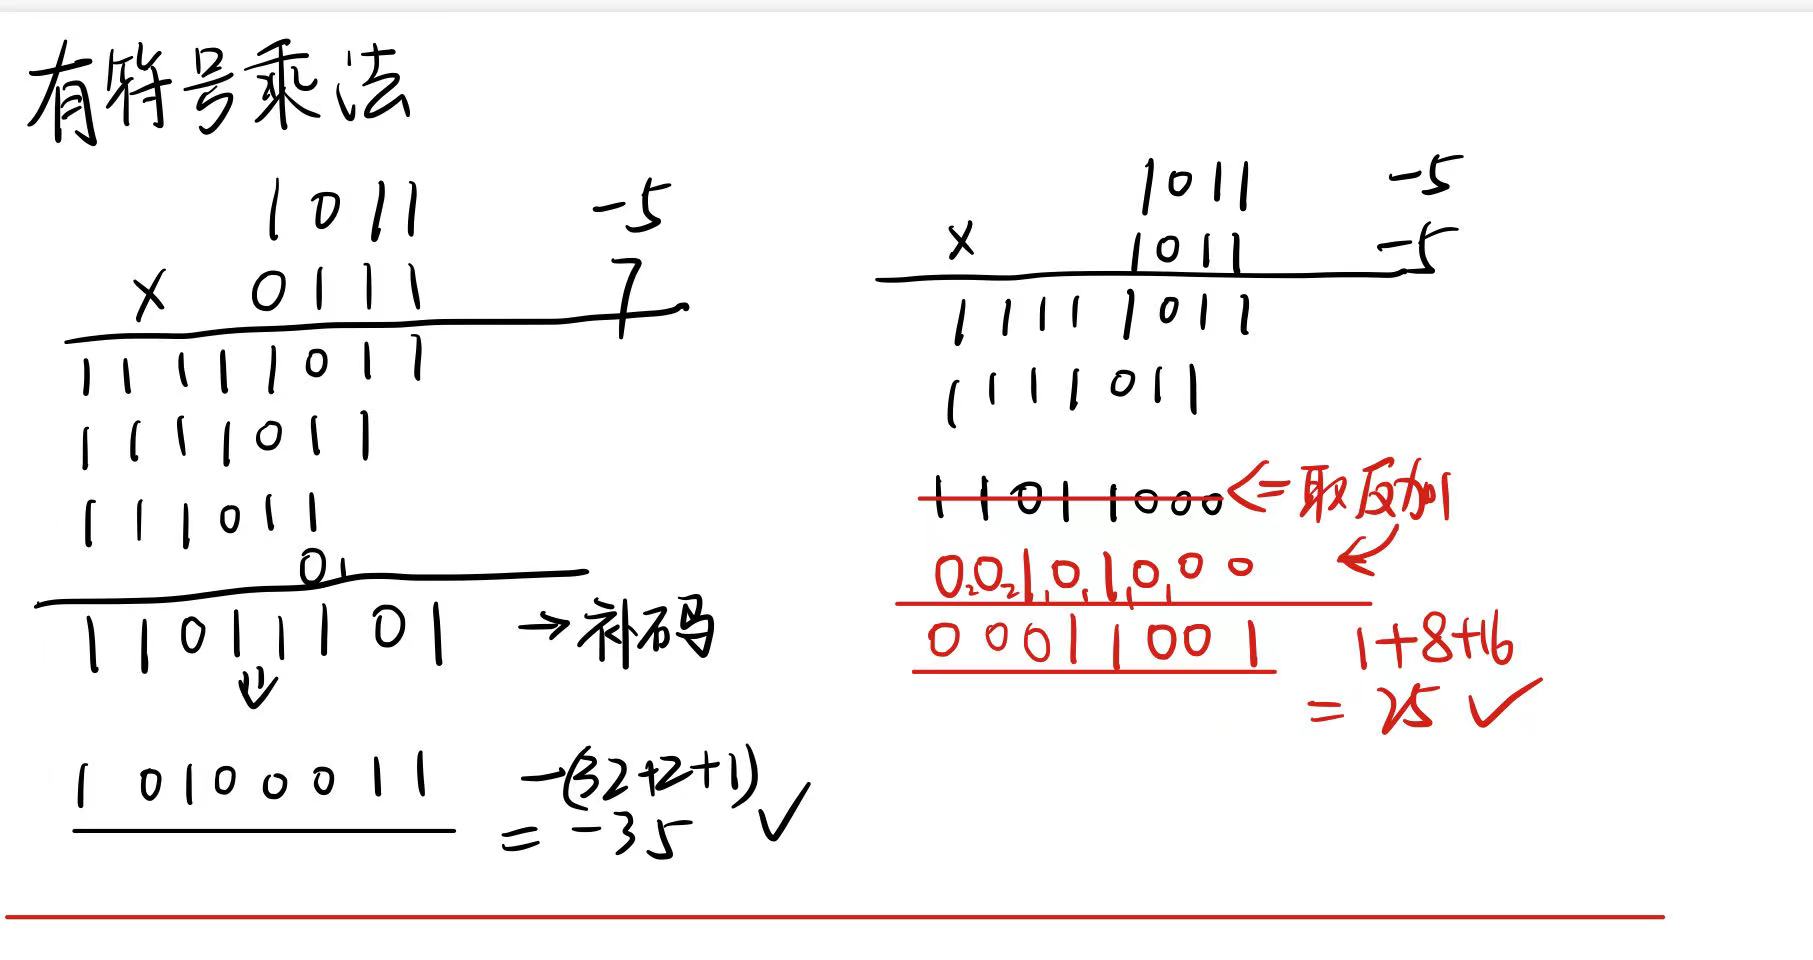 有符号乘法
1011 -5
× 0111 7
11111011
1111011
111011
0
11011101 → 补码
⇓
10100011 -(32+2+1)
= -35 ✓
1011 -5
× 1011 -5
11111011
1111011
11011000 ⇐ 取反加1
00101000
00011001 1+8+16
= 25 ✓